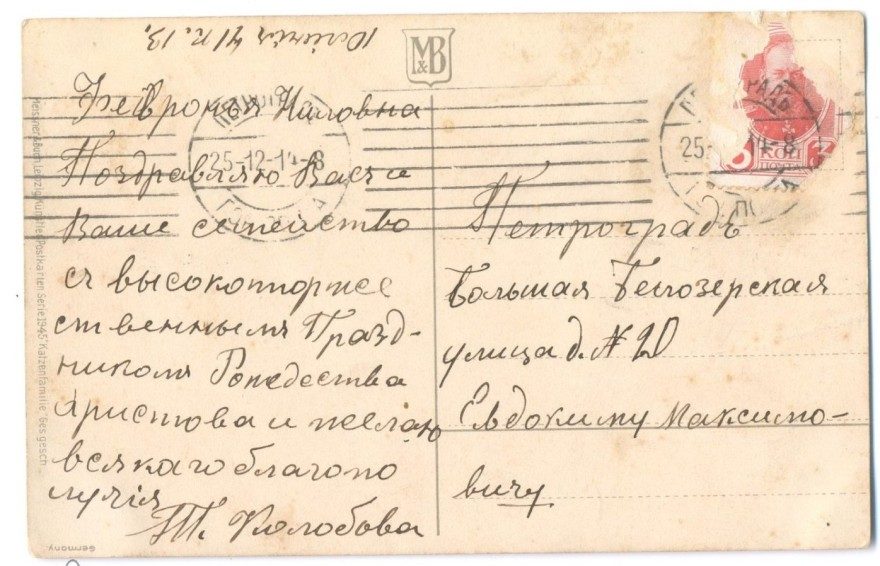 M&B
Февронiя Ниловна
Поздравляю Васъ и
Ваше семейство
съ высокоторже
ственнымъ Празд-
никомъ Рождества
Христова и желаю
всякаго благопо
лучiя
Т. Колобова
25-12-14-8
Петроградъ
Большая Белозерская
улица д. № 20
Евдокиму Максимо-
вичу
КОП
Meissner & Buch, Leipzig Künstler-Postkarten Serie 1945 "Katzenfamilie" Ges. gesch.
Germany.